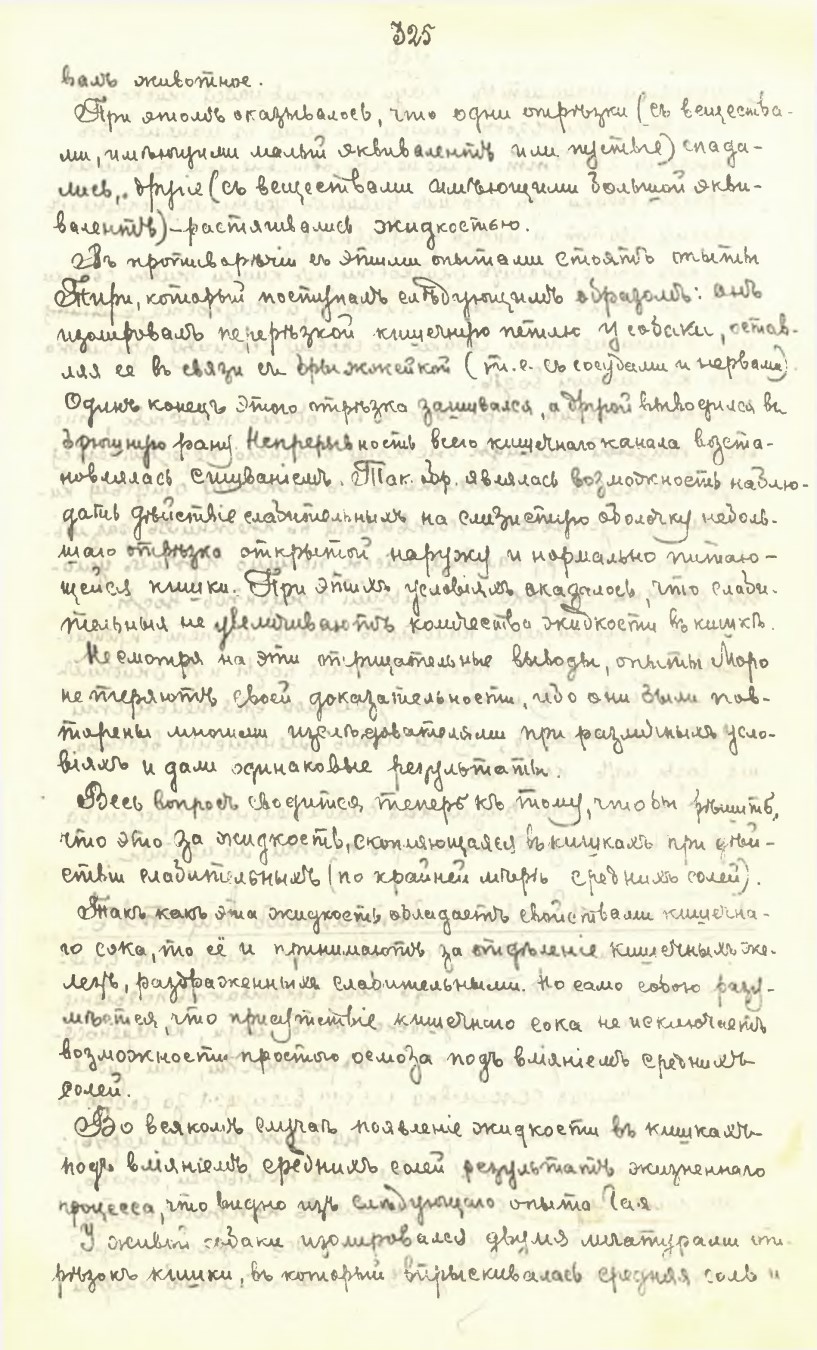 325
валъ животное.
При этомъ оказывалось, что одни отрѣзки (съ вещества-
ми, имѣющими малый эквивалентъ или пустые) спада-
лись, другіе (съ веществами имѣющими большой экви-
валентъ)-растягивались жидкостью.
Въ противорѣчіи съ этими опытами стоятъ опыты
Тири, который поступалъ слѣдующимъ образомъ: онъ
изолировалъ перерѣзкой кишечную петлю у собаки, остав-
ляя ее въ связи съ брыжжейкой (т.е. съ сосудами и нервами)
Одинъ конецъ этого отрѣзка зашивался, а другой выводился въ
брюшную рану Непрерывность всего кишечнаго канала возста-
новлялась сшиваніемъ. Так. обр. являлась возможность наблю-
дать дѣйствіе слабительныхъ на слизистую оболочку неболь-
шаго отрѣзка открытой наружу и нормально питаю-
щейся кишки. При этихъ условіяхъ оказалось, что слаби-
тельныя не увеличиваютъ количества жидкости въ кишкѣ.
Несмотря на эти отрицательные выводы, опыты Моро
не теряютъ своей доказательности, ибо они были пов-
торены многими изслѣдователями при различныхъ усло-
віяхъ и дали одинаковые результаты.
Весь вопросъ сводится теперь къ тому, чтобы рѣшить,
что это за жидкость, скопляющаяся въ кишкахъ при дѣй-
ствіи слабительныхъ (по крайней мѣрѣ среднихъ солей).
Такъ какъ эта жидкость обладаетъ свойствами кишечна-
го сока, то её и принимаютъ за отдѣленіе кишечныхъ же-
лезъ, раздраженныхъ слабительными. Но само собою разу-
мѣется, что присутствіе кишечнаго сока не исключаетъ
возможности простого осмоза подъ вліяніемъ среднихъ
солей.
Во всякомъ случаѣ появленіе жидкости въ кишкахъ
подъ вліяніемъ среднихъ солей результатъ жизненнаго
процесса, что видно изъ слѣдующаго опыта Гая
У живой собаки изолировался двумя лигатурами от-
рѣзокъ кишки, въ который впрыскивалась средняя соль и